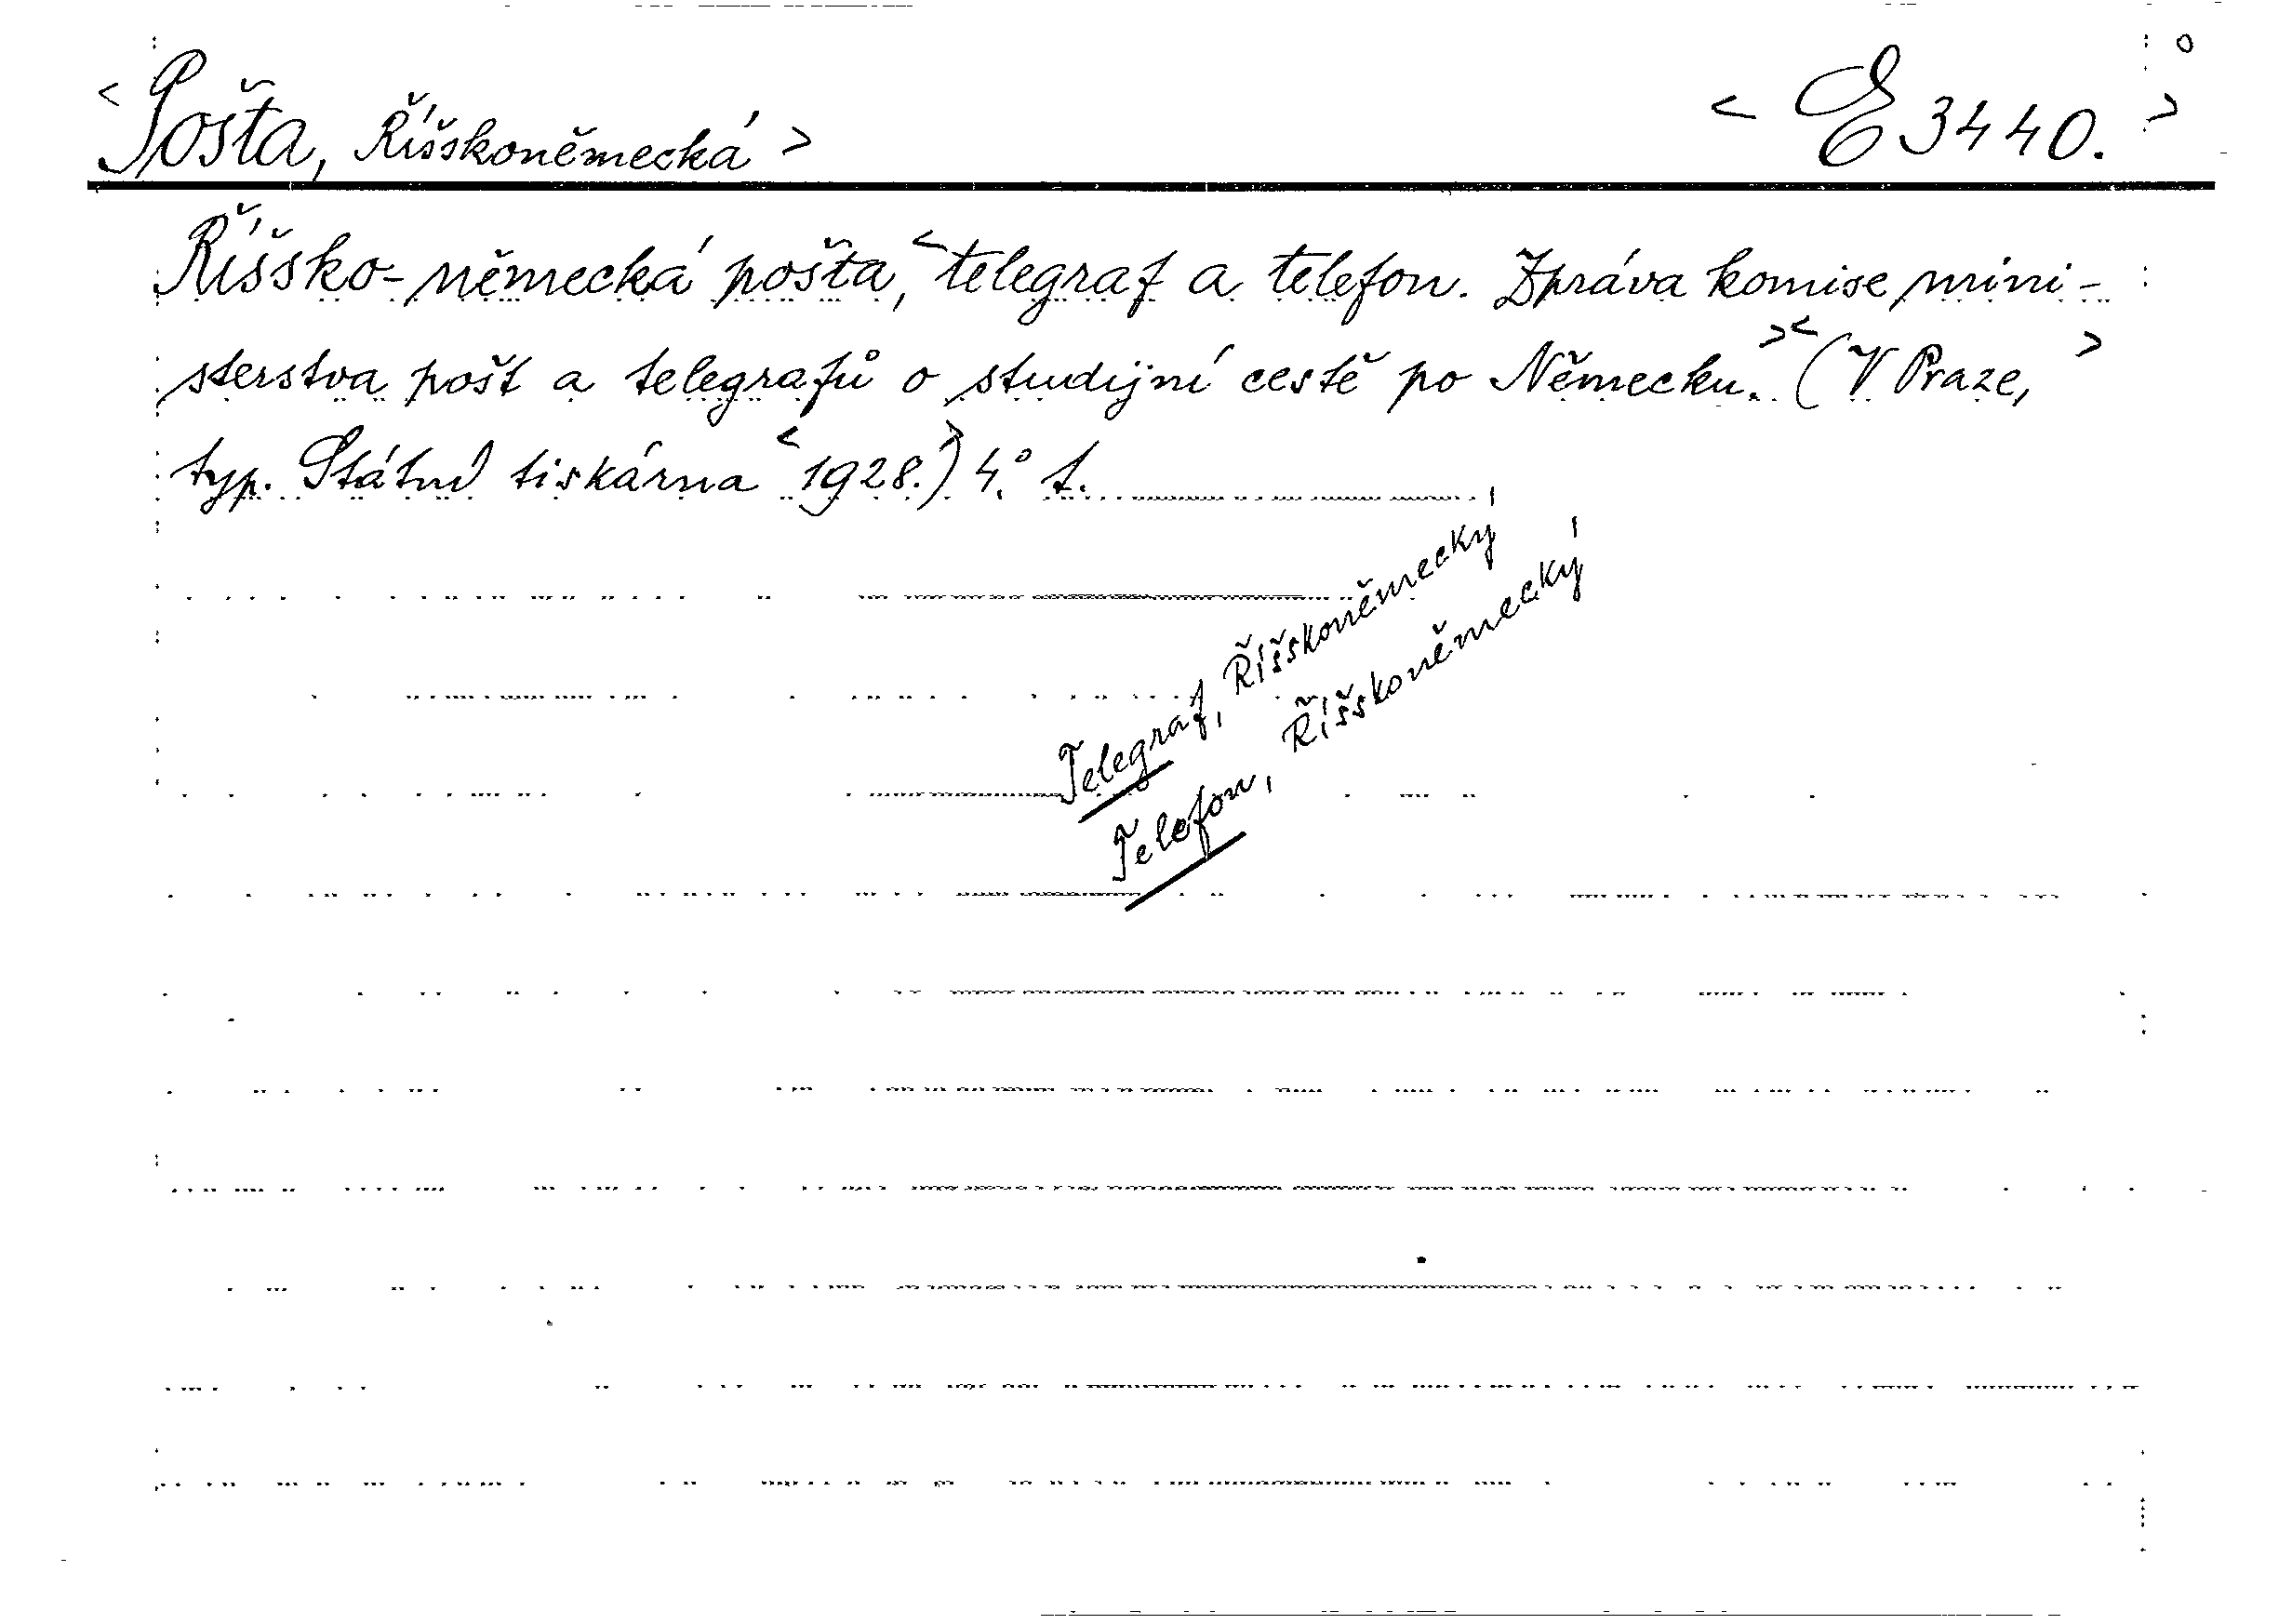 < Pošta, Říšskoněmecká >
< E 3440. >
Říšsko-německá pošta, < telegraf a telefon. Zpráva komise mini-
sterstva pošt a telegrafů o studijní cestě po Německu. > < (V Praze, >
typ. Státní tiskárna < 1928. >) 4.° t.
Telegraf, Říšskoněmecký
Telefon, Říšskoněmecký